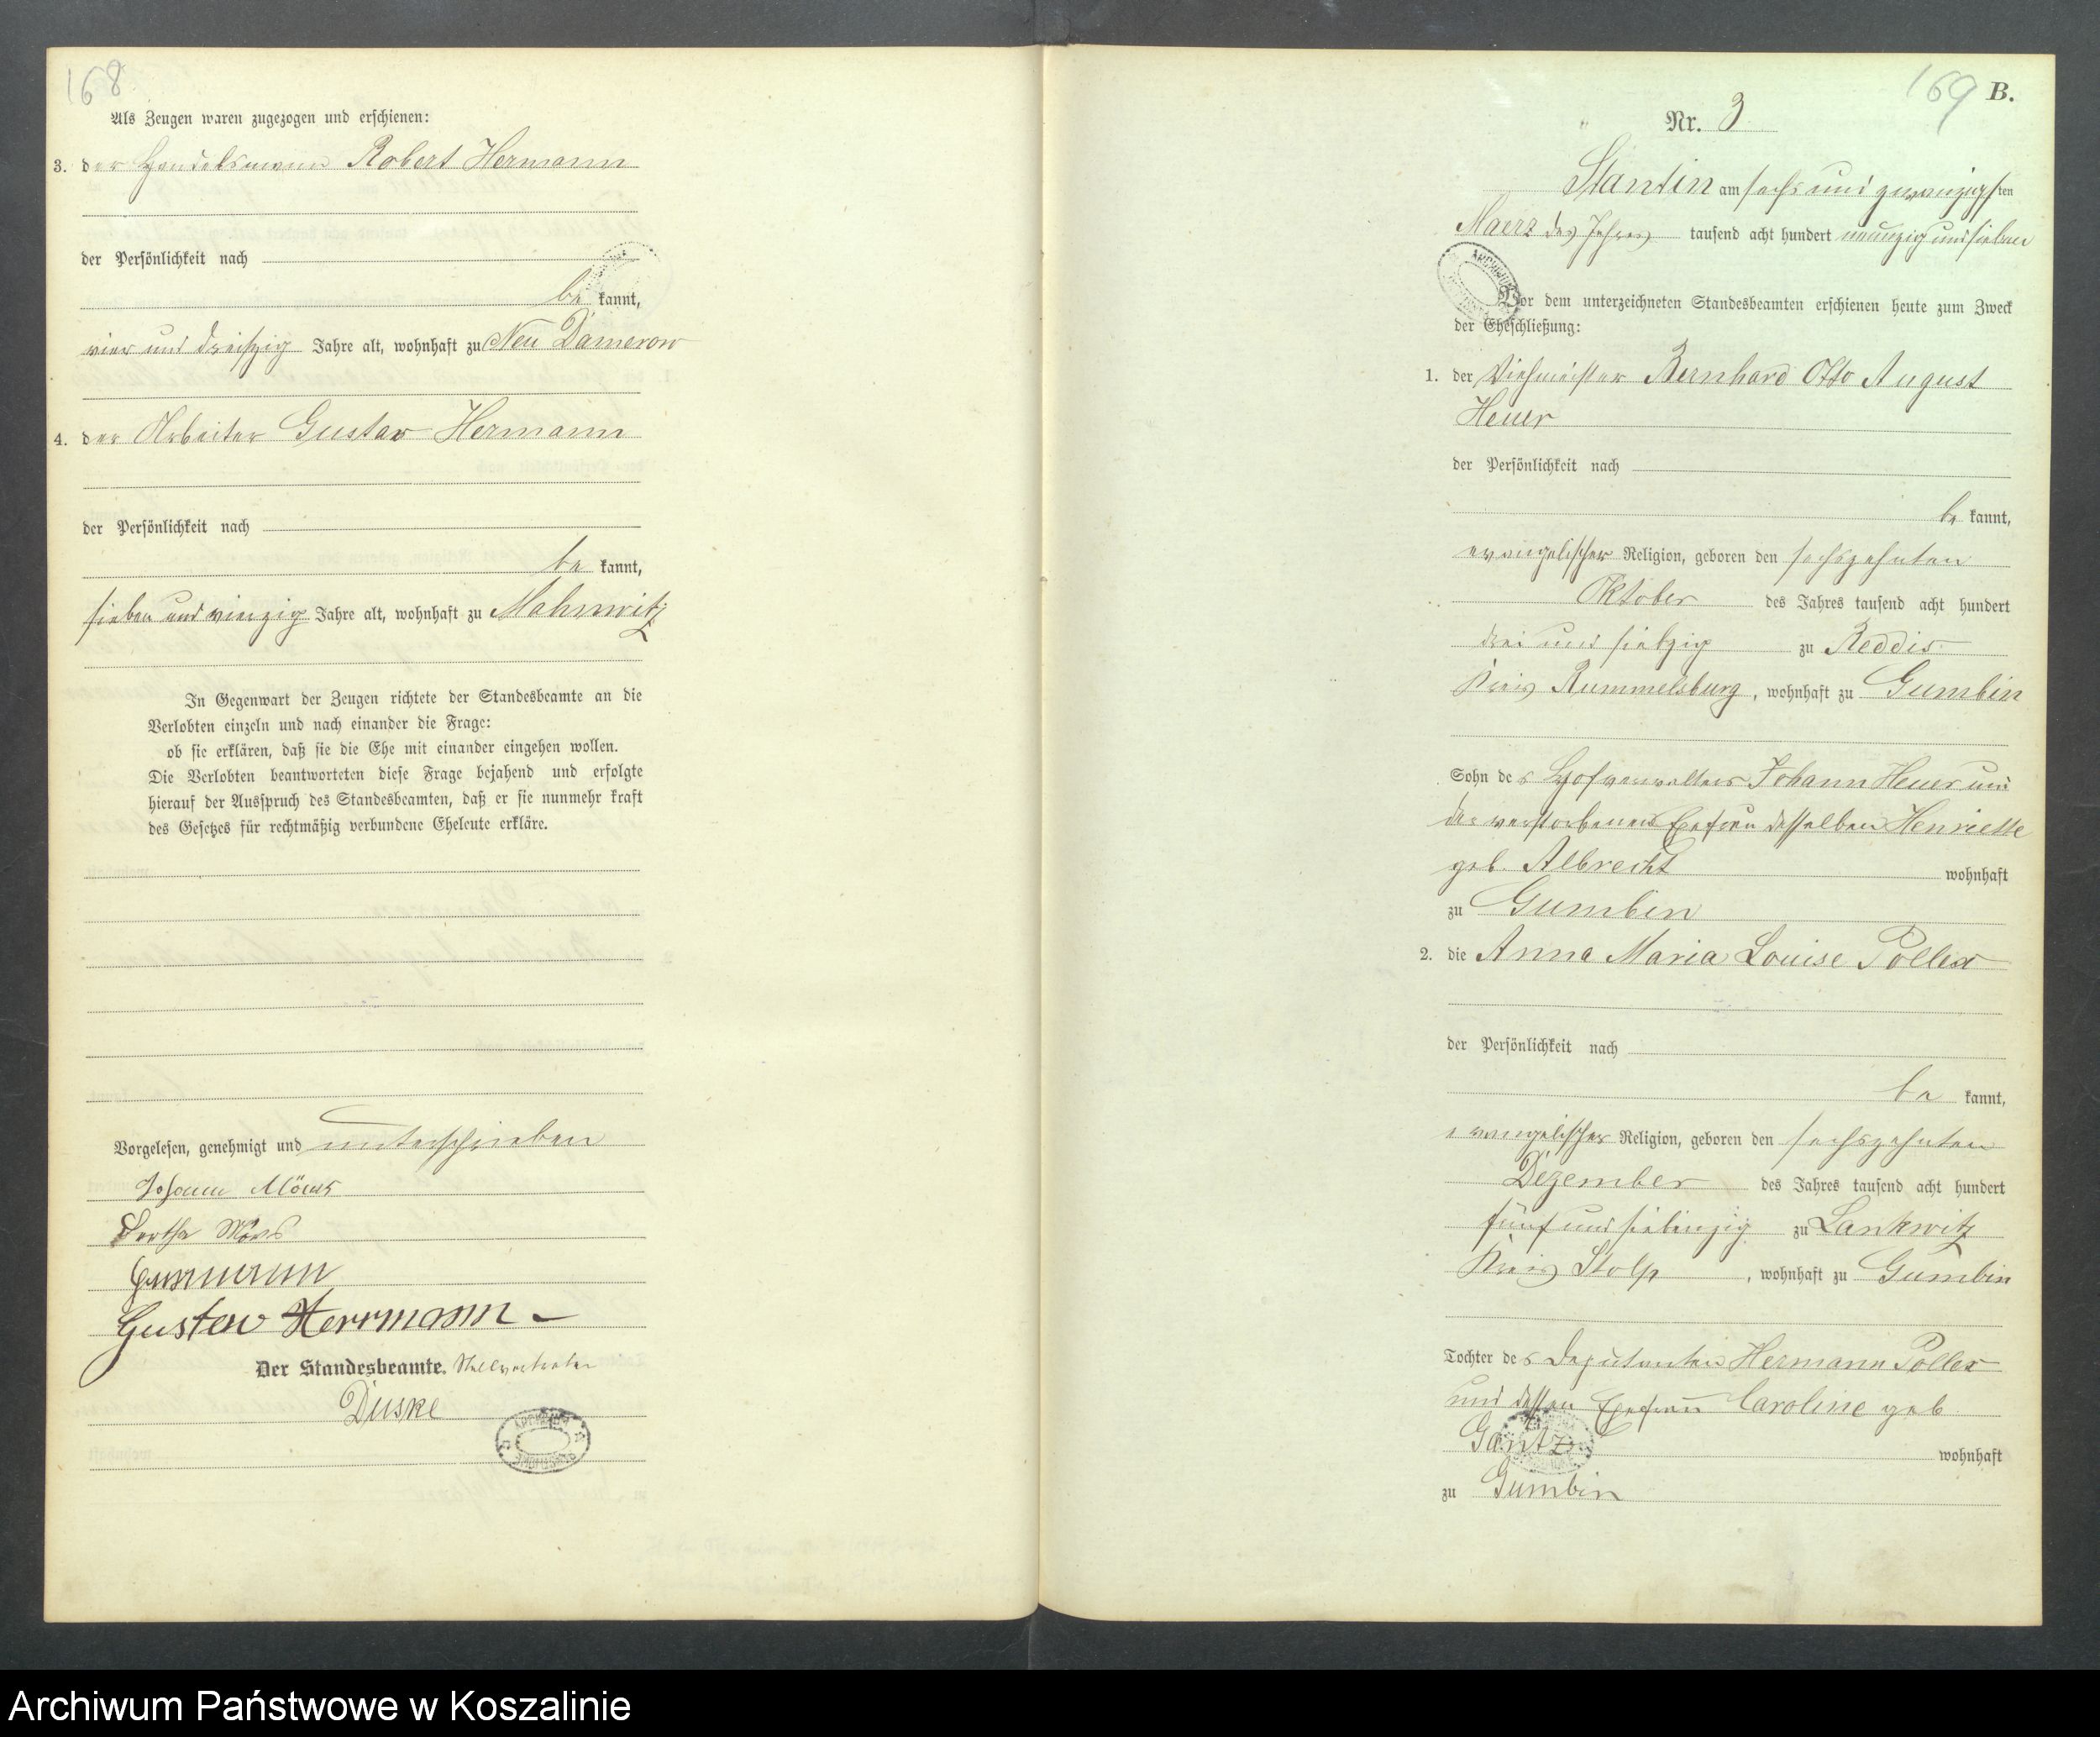 168
Als Zeugen waren zugezogen und erschienen:
3. der Handelsmann Robert Hermann
der Persönlichkeit nach
be kannt,
vier und dreißig Jahre alt, wohnhaft zu Neu Damerow
4. der Arbeiter Gustav Hermann
der Persönlichkeit nach
be kannt,
sieben und vierzig Jahre alt, wohnhaft zu Mahnwitz
In Gegenwart der Zeugen richtete der Standesbeamte an die
Verlobten einzeln und nach einander die Frage:
ob sie erklären, daß sie die Ehe mit einander eingehen wollen.
Die Verlobten beantworteten diese Frage bejahend und erfolgte
hierauf der Ausspruch des Standesbeamten, daß er sie nunmehr kraft
des Gesetzes für rechtmäßig verbundene Eheleute erkläre.
Vorgelesen, genehmigt und unterschrieben
Johann
Bertha
Gustav Herrmann
Der Standesbeamte. Stellvertreter
Duske
169 B.
Nr. 3
Stantin am sechs und zwanzigsten
Maerz des Jahres tausend acht hundert neunzig und sieben
Vor dem unterzeichneten Standesbeamten erschienen heute zum Zweck
der Eheschließung:
1. der Viehmeister Bernhard Otto August
Heuer
der Persönlichkeit nach
be kannt,
evangelischer Religion, geboren den sechszehnten
Oktober des Jahres tausend acht hundert
drei und siebzig zu Reddis
Kreis Rummelsburg, wohnhaft zu Gumbin
Sohn des Hofverwalters Johann Heuer und
der verstorbenen Ehefrau desselben Henriette
geb. Albrecht wohnhaft
zu Gumbin
2. die Anna Maria Louise Pollex
der Persönlichkeit nach
be kannt,
evangelischer Religion, geboren den sechszehnten
Dezember des Jahres tausend acht hundert
fünf und siebenzig zu Lankwitz
Kreis Stolp, wohnhaft zu Gumbin
Tochter des Deputanten Hermann Pollex
und dessen Ehefrau Caroline geb
Gantz wohnhaft
zu Gumbin
Archiwum Państwowe w Koszalinie